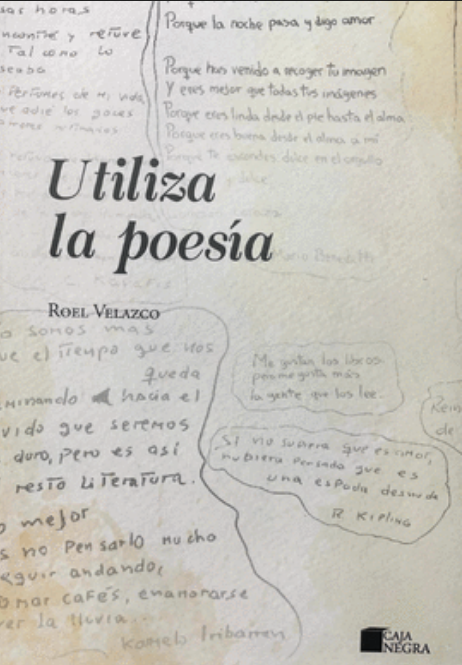 sar horas
ncontré y retuve
Tal como lo
seaba
Perfumes de mi vida
Porque la noche pasa y digo amor
Porque has venido a recoger tu imagen
Y eres mejor que todas tus imágenes
Porque eres linda desde el pie hasta el alma
Porque eres buena desde el alma a mí
Porque te escondes dulce en el orgullo
y dulce
Utiliza
la poesía
Mario Benedetti
Roel Velazco
o somos mas
ue el Tiempo que nos
queda
minando hacia el
vido que seremos
duro, pero es así
resto Literatura.
o mejor
s no pensarlo mucho
eguir andando,
omar cafés, enamorarse
er la lluvia...
Karmelo Iribarren
Me gustan los libros
pero me gusta más
la gente que los lee.
Si no supiera que es amor,
hubiera pensado que es
una espada desnuda
R Kipling
Rein
de
CAJA
NEGRA